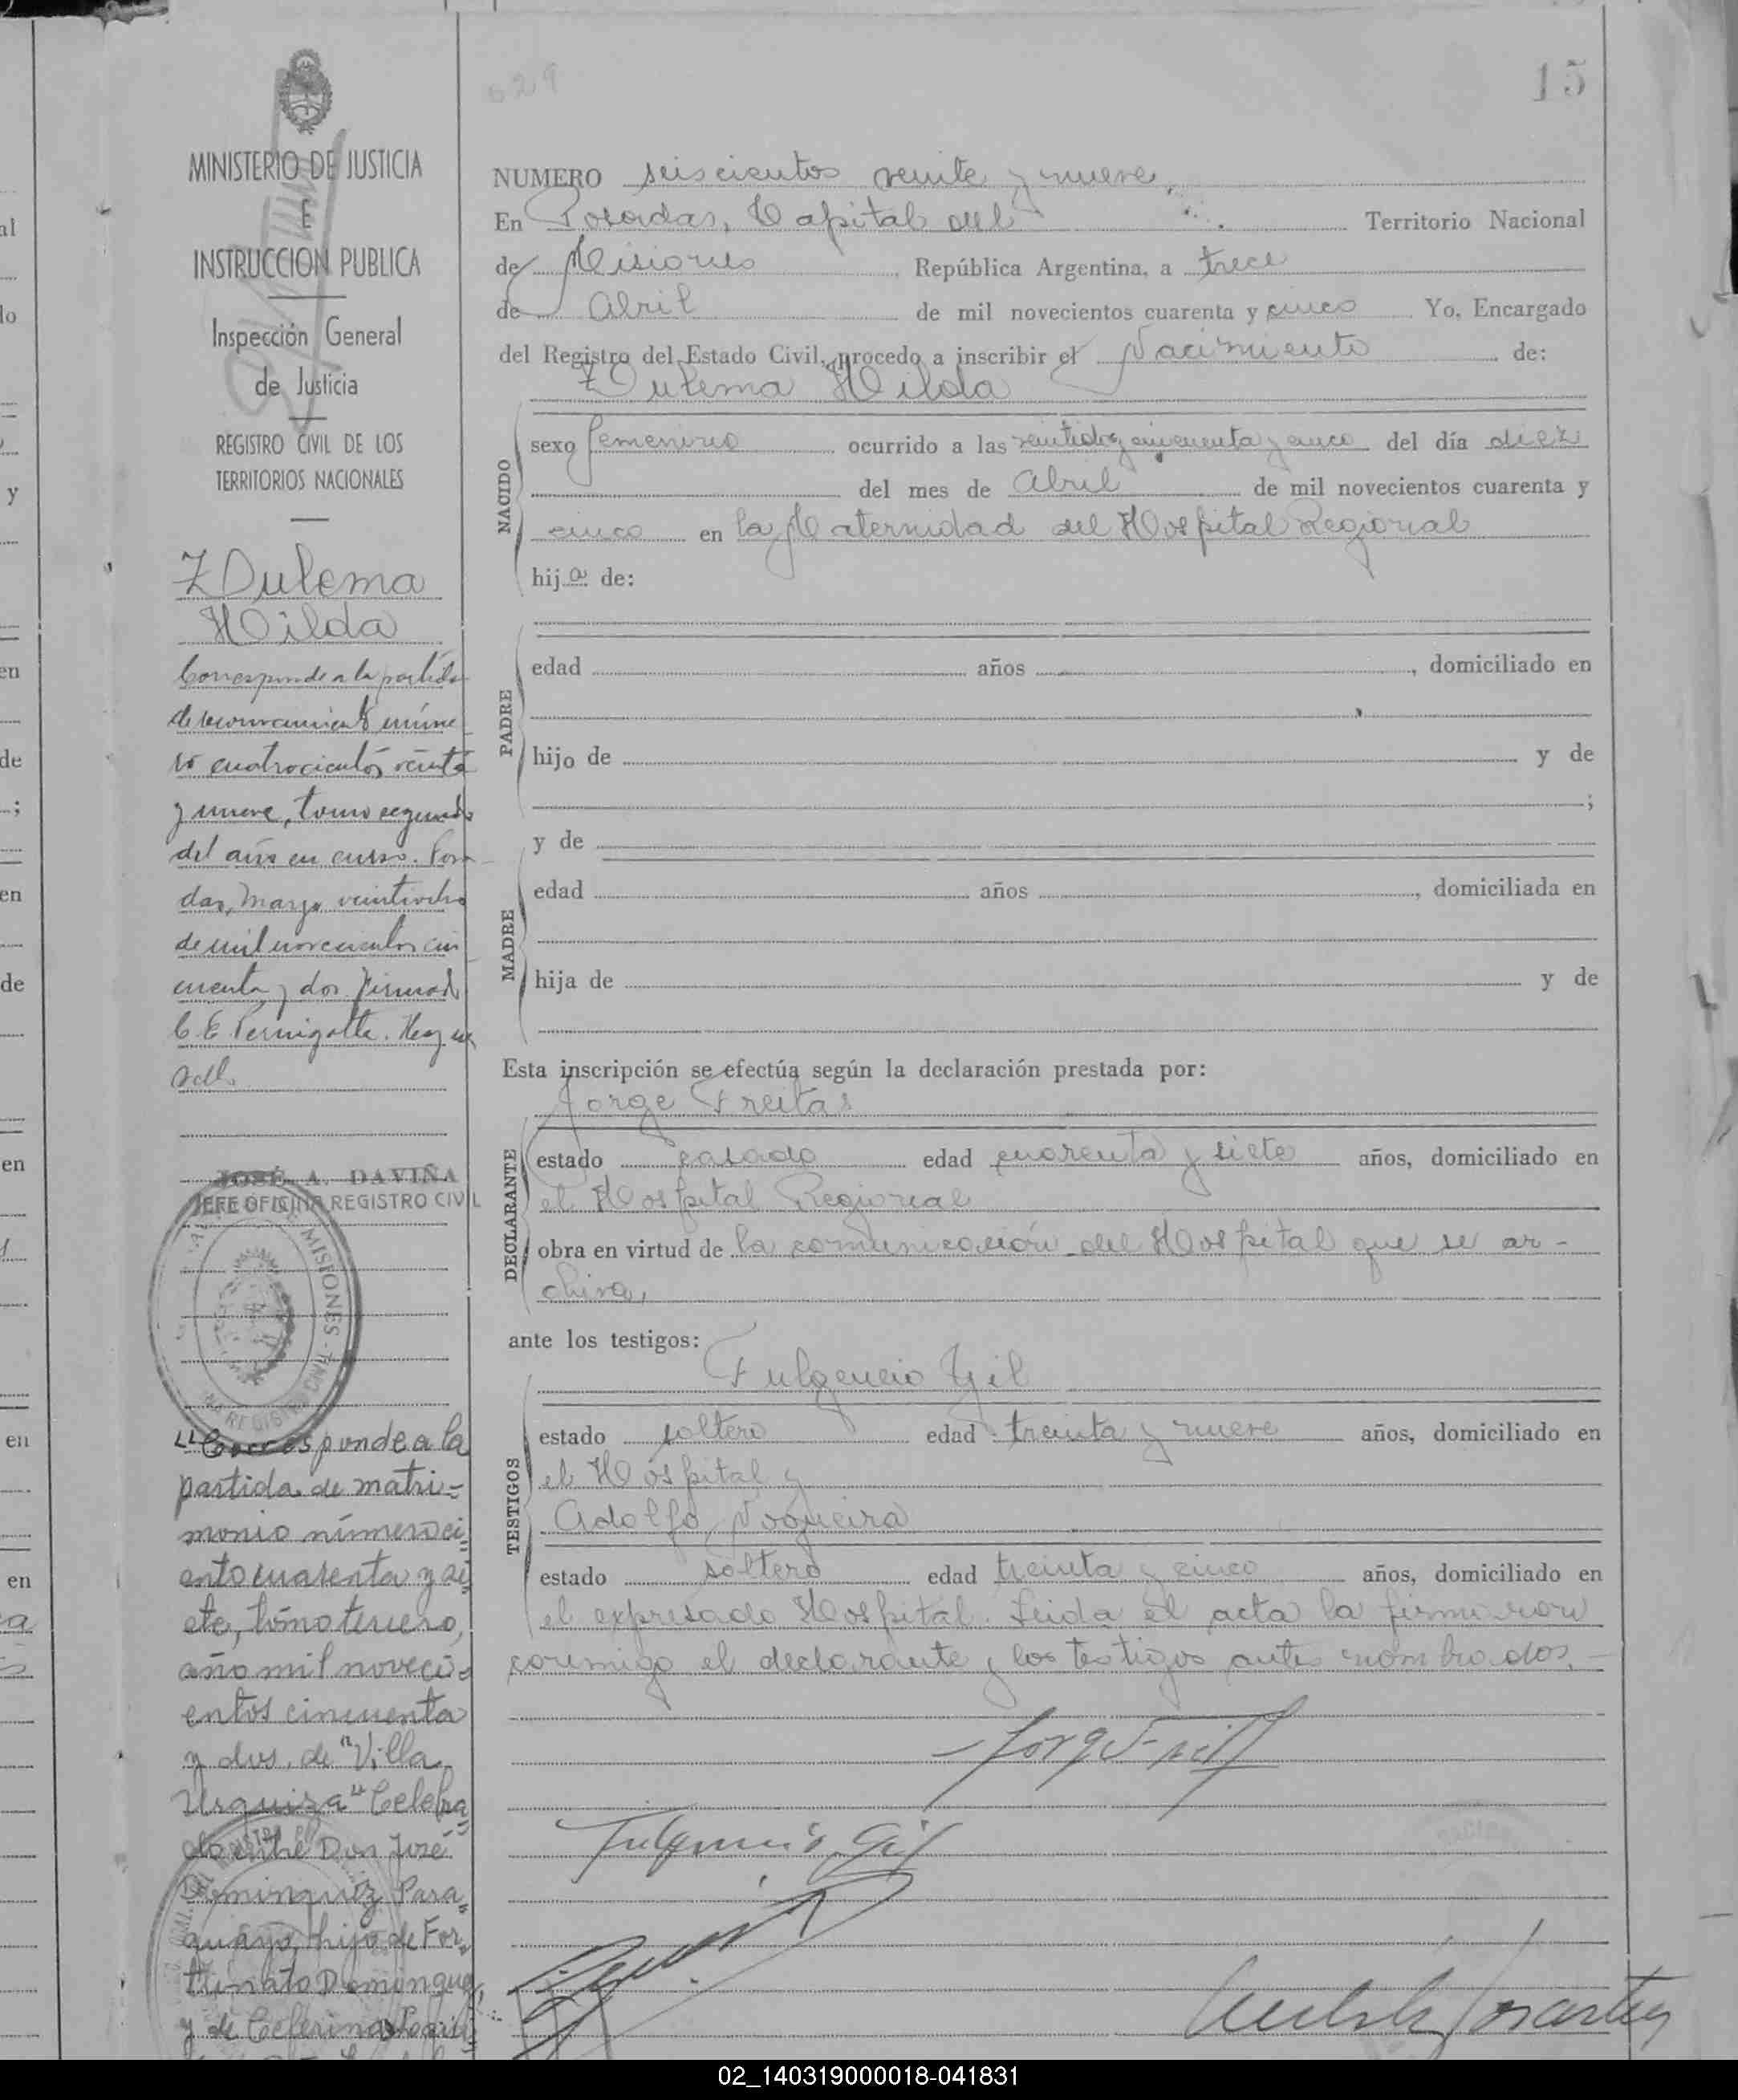 15
629
MINISTERIO DE JUSTICIA
E
INSTRUCCION PUBLICA
Inspección General
de Justicia
REGISTRO CIVIL DE LOS
TERRITORIOS NACIONALES
ZDulema
Hilda
Corresponde a la partida
de reconocimiento núme
ro cuatrocientos veinte
y nueve, tomo segundo
del año en curso. Posa
das, Marzo veintiocho
de mil novecientos cin
cuenta y dos. Firmado
C. E. Pernigotte. Hay un
sello.
JOSÉ A. DAVIÑA
JEFE OFICINA REGISTRO CIVIL
MISIONES
"Corresponde a la
partida de matri=
monio número ci
ento cuarenta y si
ete, tomo tercero,
año mil noveci=
entos cincuenta
y dos, de "Villa
Urquiza" Celebra
do entre Don José
Dominguez Para=
guayo, hijo de For=
tunato Dominguez,
y de Ceferina
NUMERO seiscientos veinte y nueve,
En Posadas, Capital del Territorio Nacional
de Misiones, República Argentina, a trece
de Abril de mil novecientos cuarenta y cinco Yo, Encargado
del Registro del Estado Civil, procedo a inscribir el Nacimiento de:
ZDulema Hilda
NACIDO
sexo femenino ocurrido a las veintidos y cincuenta y cinco del día diez
del mes de Abril de mil novecientos cuarenta y
cinco en la Maternidad del Hospital Regional
hija de:
PADRE
edad años , domiciliado en
hijo de y de
;
y de
MADRE
edad años , domiciliada en
hija de y de
Esta inscripción se efectúa según la declaración prestada por:
Jorge Freitas
DECLARANTE
estado casado edad cuarenta y siete años, domiciliado en
el Hospital Regional
obra en virtud de la comunicación del Hospital que se ar-
chiva,
ante los testigos:
Fulgencio Gil
TESTIGOS
estado soltero edad treinta y nueve años, domiciliado en
el Hospital y
Adolfo Nogueira
estado soltero edad treinta y cinco años, domiciliado en
el expresado Hospital. Leida el acta la firmaron
conmigo el declarante y los testigos antes nombrados.-
Fulgencio Gil
02_140319000018-041831